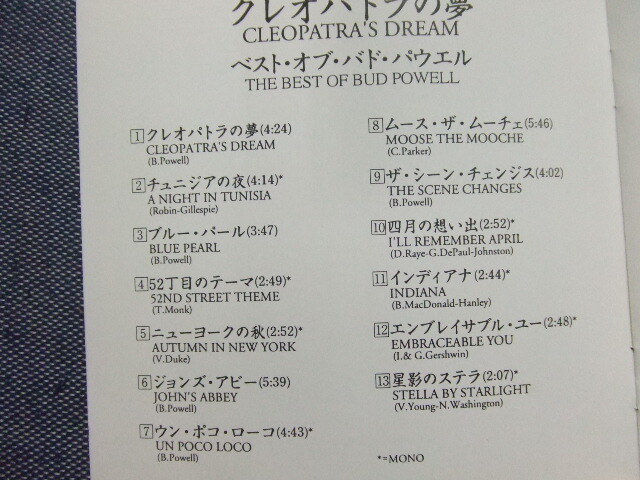 クレオパトラの夢
CLEOPATRA'S DREAM
ベスト・オブ・バド・パウエル
THE BEST OF BUD POWELL
1 クレオパトラの夢(4:24)
CLEOPATRA'S DREAM
(B.Powell)
2 チュニジアの夜(4:14)*
A NIGHT IN TUNISIA
(Robin-Gillespie)
3 ブルー・パール(3:47)
BLUE PEARL
(B.Powell)
4 52丁目のテーマ(2:49)*
52ND STREET THEME
(T.Monk)
5 ニューヨークの秋(2:52)*
AUTUMN IN NEW YORK
(V.Duke)
6 ジョンズ・アビー(5:39)
JOHN'S ABBEY
(B.Powell)
7 ウン・ポコ・ローコ(4:43)*
UN POCO LOCO
(B.Powell)
8 ムース・ザ・ムーチェ(5:46)
MOOSE THE MOOCHE
(C.Parker)
9 ザ・シーン・チェンジス(4:02)
THE SCENE CHANGES
(B.Powell)
10 四月の想い出(2:52)*
I'LL REMEMBER APRIL
(D.Raye-G.DePaul-Johnston)
11 インディアナ(2:44)*
INDIANA
(B.MacDonald-Hanley)
12 エンブレイサブル・ユー(2:48)*
EMBRACEABLE YOU
(I.& G.Gershwin)
13 星影のステラ(2:07)*
STELLA BY STARLIGHT
(V.Young-N.Washington)
*=MONO